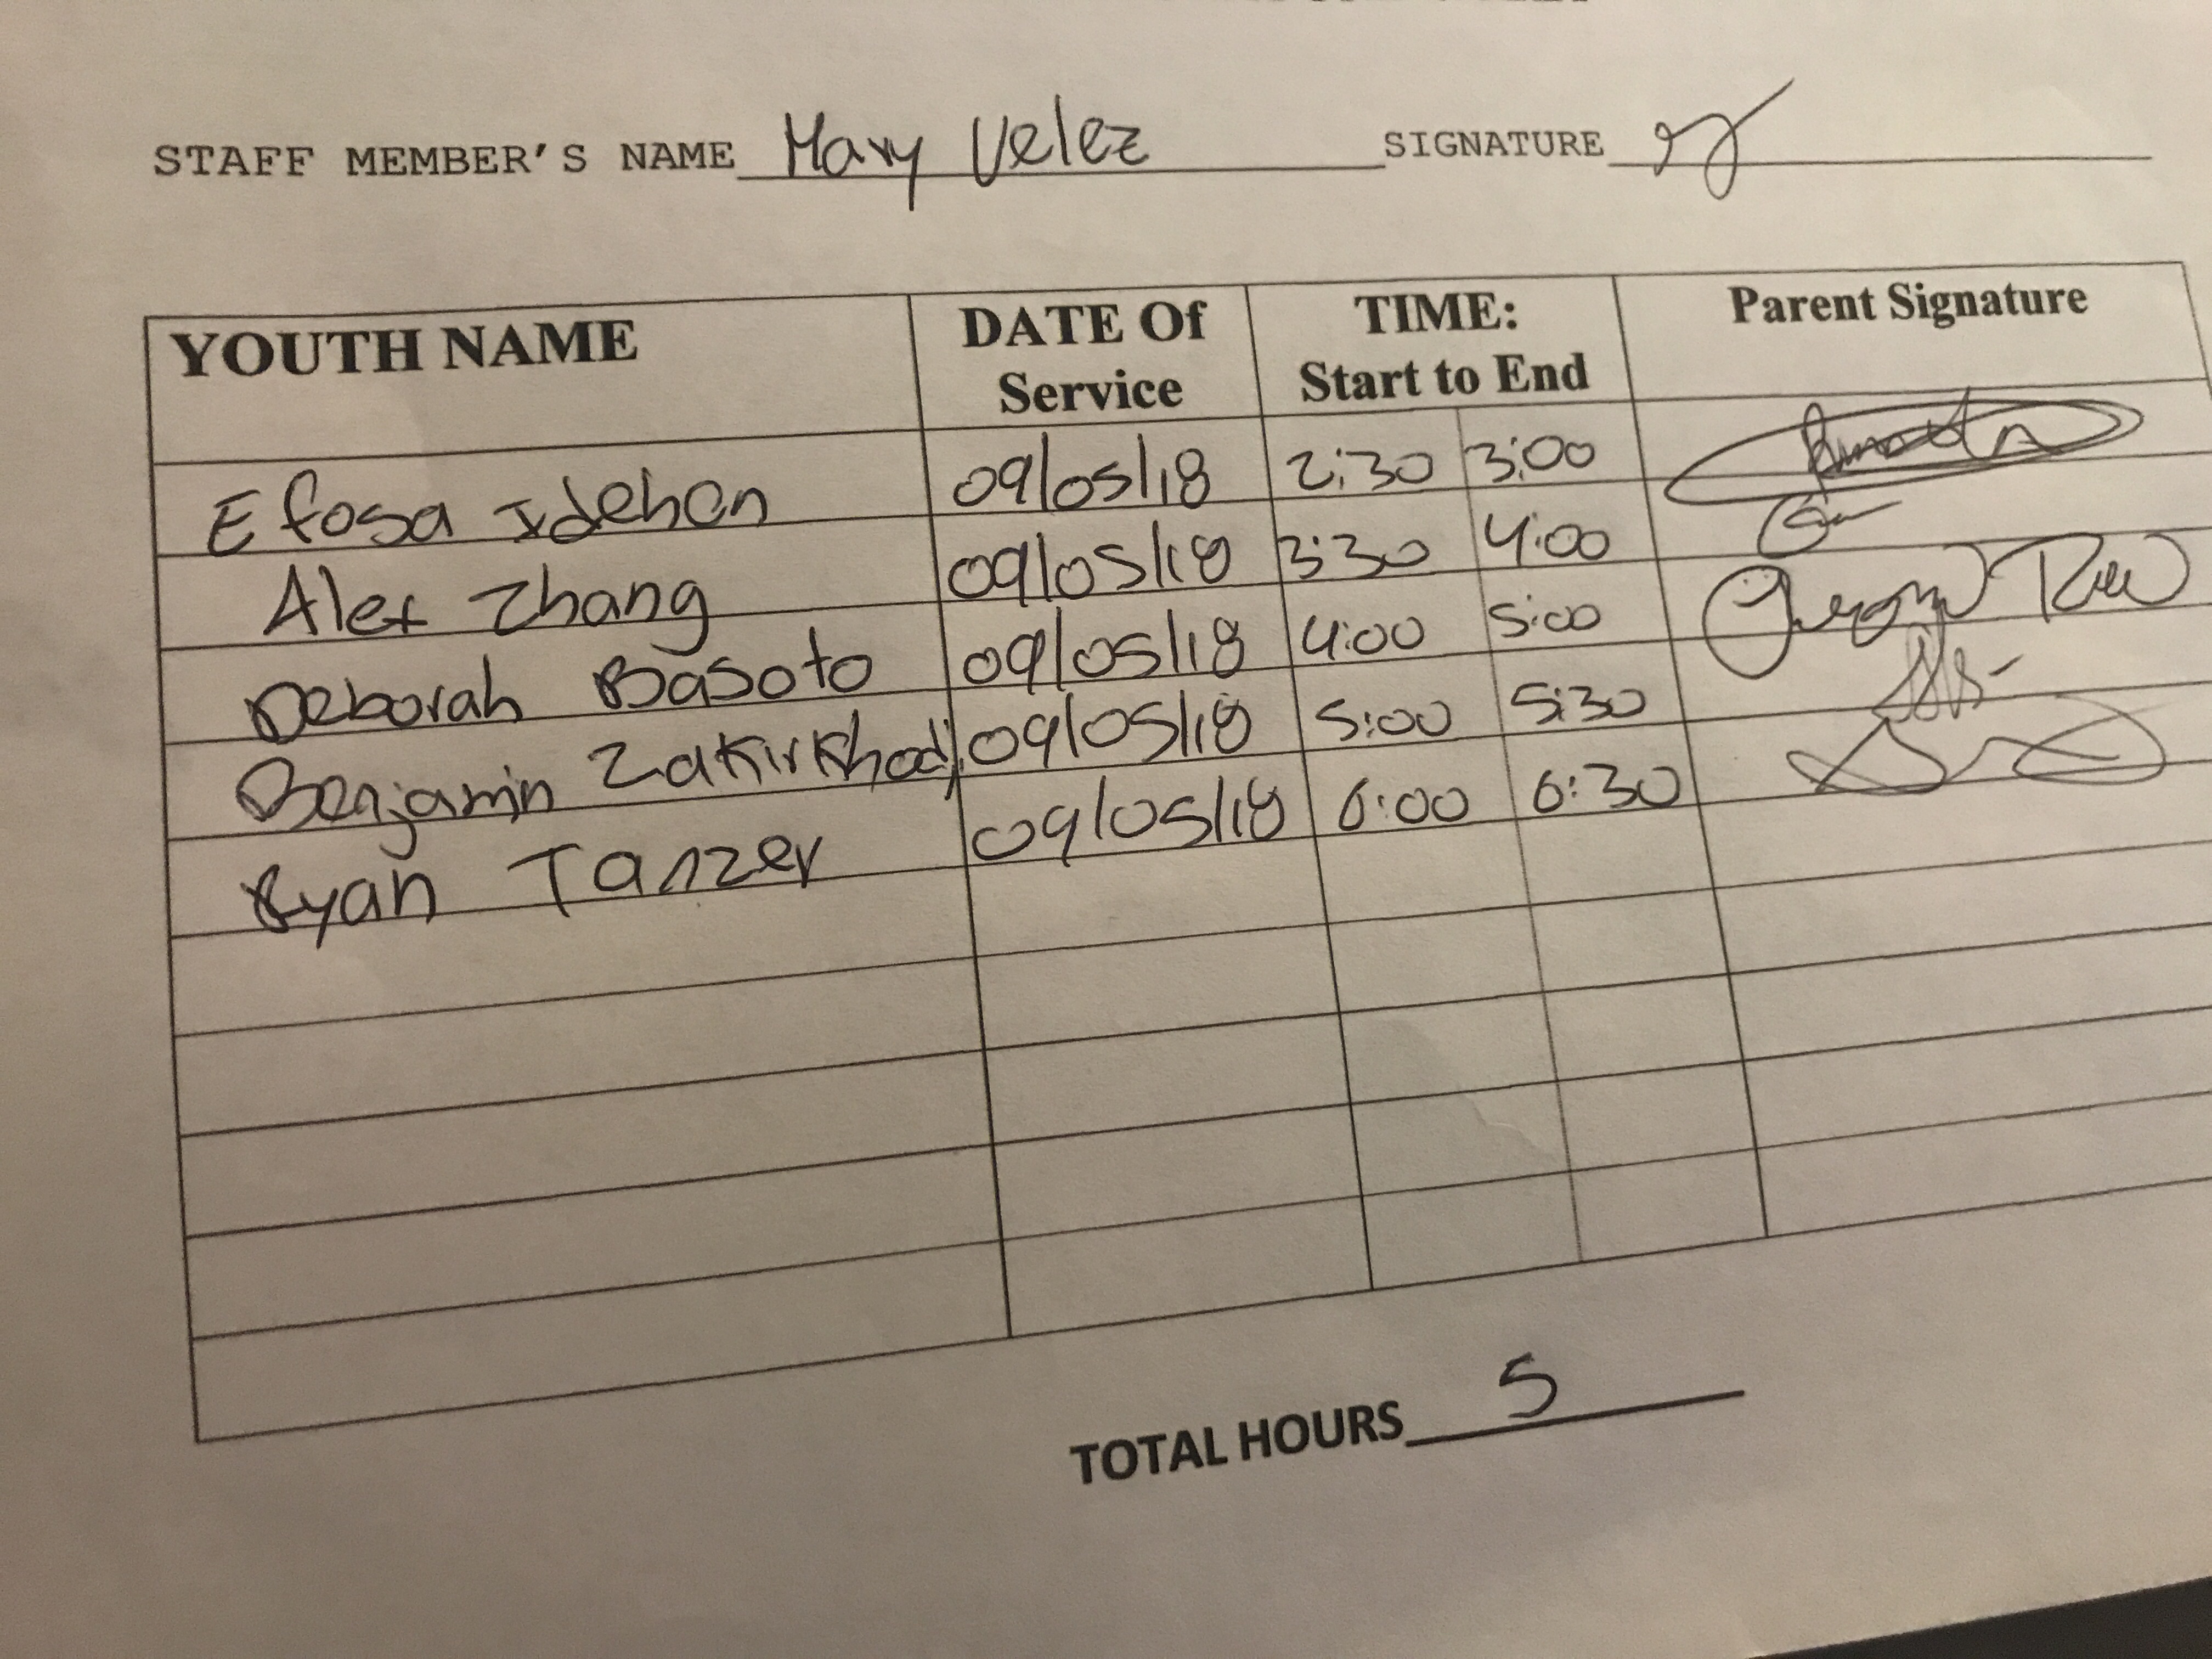 STAFF MEMBER'S NAME Mary Velez SIGNATURE
YOUTH NAME DATE Of Service TIME: Start to End Parent Signature
Efosa Idehan 09/05/18 2:30 3:00
Alex Zhang 09/05/18 3:30 4:00
Deborah Basoto 09/05/18 4:00 5:00
Benjamin Zakirkhodj 09/05/18 5:00 5:30
Ryan Tanzer 09/05/18 6:00 6:30
TOTAL HOURS 5